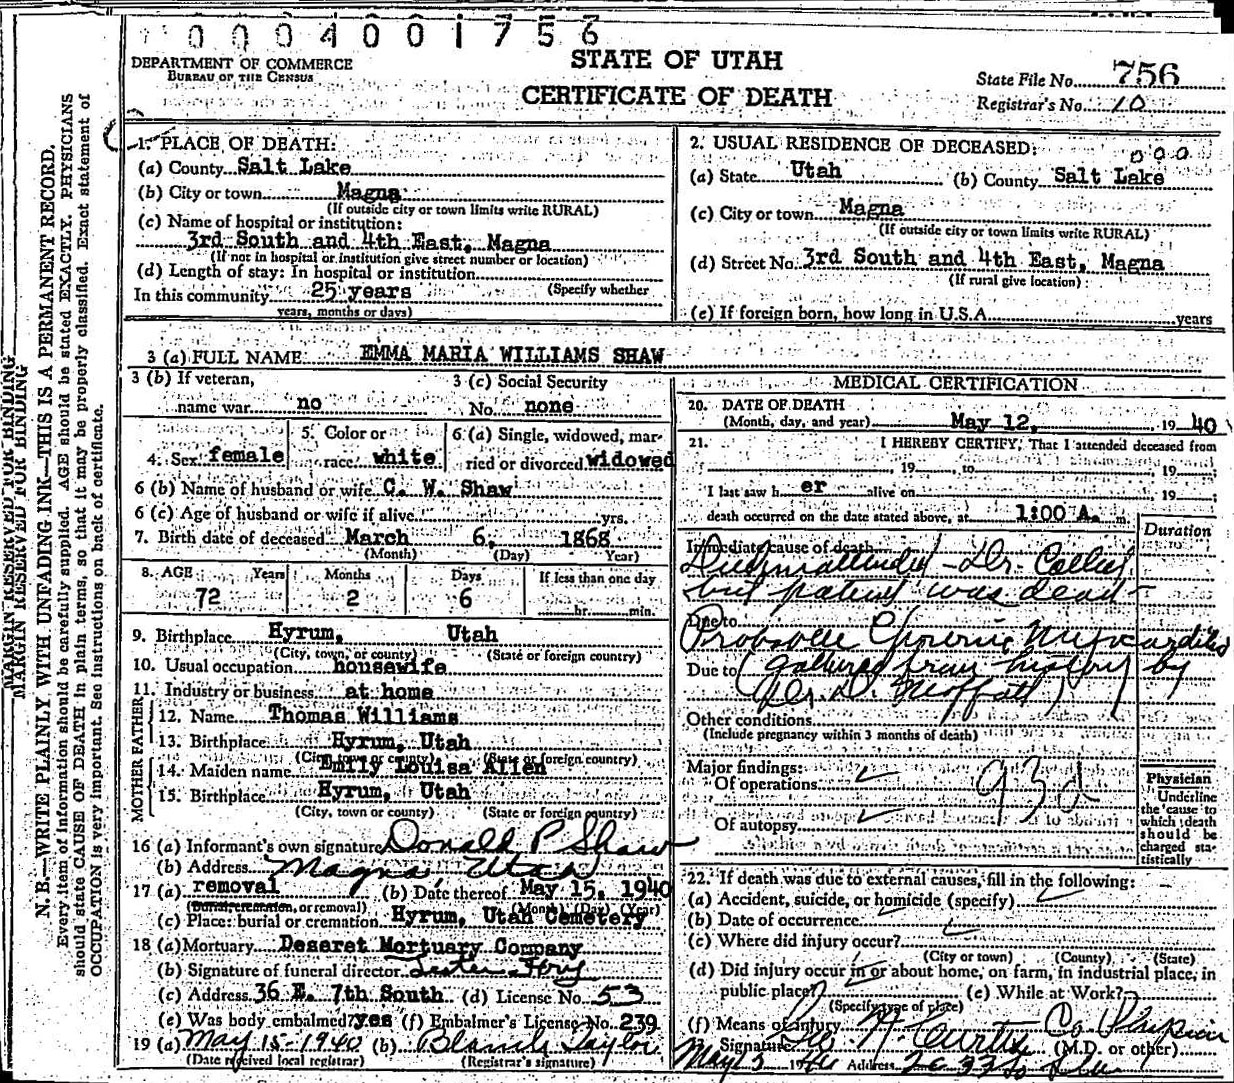 0004001756
DEPARTMENT OF COMMERCE
BUREAU OF THE CENSUS
STATE OF UTAH
CERTIFICATE OF DEATH
State File No. 756
Registrar's No. 10
MARGIN RESERVED FOR BINDING
MARGIN RESERVED FOR BINDING
N. B.—WRITE PLAINLY WITH UNFADING INK—THIS IS A PERMANENT RECORD.
Every item of information should be carefully supplied. AGE should be stated EXACTLY. PHYSICIANS
should state CAUSE OF DEATH in plain terms, so that it may be properly classified. Exact statement of
OCCUPATION is very important. See instructions on back of certificate.
1. PLACE OF DEATH:
(a) County Salt Lake
(b) City or town Magna
(If outside city or town limits write RURAL)
(c) Name of hospital or institution:
3rd South and 4th East, Magna
(If not in hospital or institution give street number or location)
(d) Length of stay: In hospital or institution
(Specify whether
In this community 25 years
years, months or days)
2. USUAL RESIDENCE OF DECEASED:
000
(a) State Utah (b) County Salt Lake
(c) City or town Magna
(If outside city or town limits write RURAL)
(d) Street No. 3rd South and 4th East, Magna
(If rural give location)
(e) If foreign born, how long in U.S.A. years
3 (a) FULL NAME EMMA MARIA WILLIAMS SHAW
3 (b) If veteran, name war no
3 (c) Social Security No. none
4. Sex female
5. Color or race white
6 (a) Single, widowed, married or divorced widowed
6 (b) Name of husband or wife C. W. Shaw
6 (c) Age of husband or wife if alive yrs.
7. Birth date of deceased March 6, 1868
(Month) (Day) Year)
8. AGE Years Months Days If less than one day
72 2 6 hr. min.
9. Birthplace Hyrum, Utah
(City, town, or county) (State or foreign country)
10. Usual occupation housewife
11. Industry or business at home
FATHER
12. Name Thomas Williams
13. Birthplace Hyrum, Utah
(City, town or county) (State or foreign country)
MOTHER
14. Maiden name Emily Louisa Allen
15. Birthplace Hyrum, Utah
(City, town or county) (State or foreign country)
16 (a) Informant's own signature Donald P Shaw
(b) Address Magna, Utah
17 (a) removal (b) Date thereof May 15, 1940
(Burial, cremation, or removal) (Month) (Day) (Year)
(c) Place: burial or cremation Hyrum, Utah Cemetery
18 (a) Mortuary Deseret Mortuary Company
(b) Signature of funeral director
(c) Address 36 E. 7th South (d) License No. 53
(e) Was body embalmed? yes (f) Embalmer's License No. 239
19 (a) May 15-1940 (b) Blanch Taylor
(Date received local registrar) (Registrar's signature)
MEDICAL CERTIFICATION
20. DATE OF DEATH
(Month, day, and year) May 12, 1940
21. I HEREBY CERTIFY, That I attended deceased from
, 19 , to , 19 ;
I last saw h er alive on , 19 ;
death occurred on the date stated above, at 1:00 A. m.
Duration
Immediate cause of death
Died unattended - Dr.
but patient was dead -
Due to
Probable Chronic Myocarditis
Due to (gathered from history by
Dr. D. Moffatt)
Other conditions
(Include pregnancy within 3 months of death)
Major findings:
Of operations
93d
Of autopsy
Physician
Underline
the cause to
which death
should be
charged sta-
tistically
22. If death was due to external causes, fill in the following:
(a) Accident, suicide, or homicide (specify)
(b) Date of occurrence
(c) Where did injury occur?
(City or town) (County) (State)
(d) Did injury occur in or about home, on farm, in industrial place, in
public place?
(Specify type of place)
(e) While at Work?
(f) Means of injury
Signature Geo. N. Curtis Co Physician
(M.D. or other)
Address